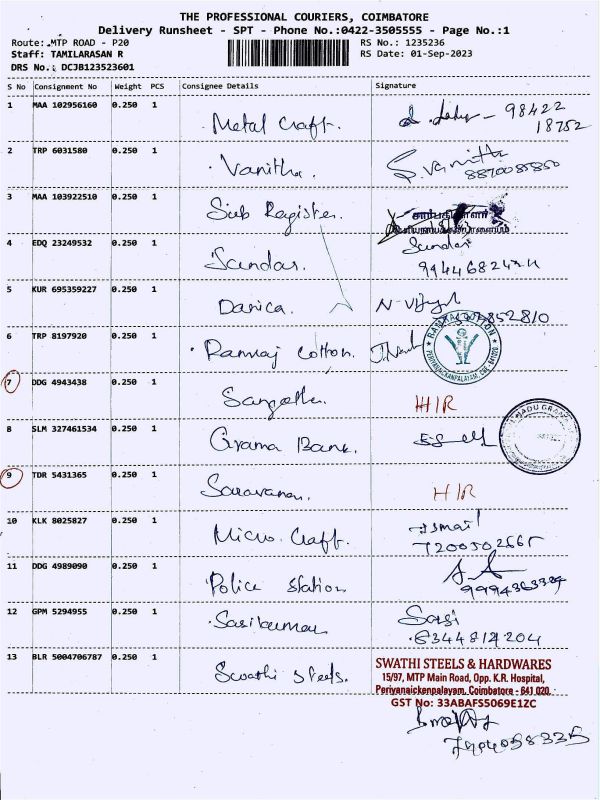 THE PROFESSIONAL COURIERS, COIMBATORE
Delivery Runsheet - SPT - Phone No.:0422-3505555 - Page No.:1
Route: MTP ROAD - P20 RS No.: 1235236
Staff: TAMILARASAN R RS Date: 01-Sep-2023
DRS No.: DCJB123523601
S No Consignment No Weight PCS Consignee Details Signature
1 MAA 102956160 0.250 1 Metal Craft. 98422
18752
2 TRP 6031580 0.250 1 Vanitha. S. Vanitha
3 MAA 103922510 0.250 1 Sub Register.
4 EDQ 23249532 0.250 1 Sundar. Sundar
5 KUR 695359227 0.250 1 Darica.
6 TRP 8197920 0.250 1 Ramraj Cotton. RAMRAJ COTTON
PERIYANAICKENPALAYAM, CBE 641020
7 DDG 4943438 0.250 1 HIR
8 SLM 327461534 0.250 1 Grama Bank.
9 TDR 5431365 0.250 1 Saravanan. HIR
10 KLK 8025827 0.250 1 Micro Craft. Ismail
7200502665
11 DDG 4989090 0.250 1 Police Station
12 GPM 5294955 0.250 1 Sasikumar Sasi
13 BLR 5004706787 0.250 1 Swathi Steels. SWATHI STEELS & HARDWARES
15/97, MTP Main Road, Opp. K.R. Hospital,
Periyanaickenpalayam, Coimbatore - 641 020.
GST No: 33ABAFS5069E1ZC